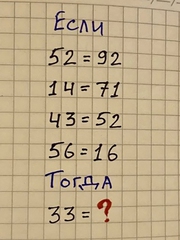 Если
52=92
14=71
43=52
56=16
Тогда
33=?